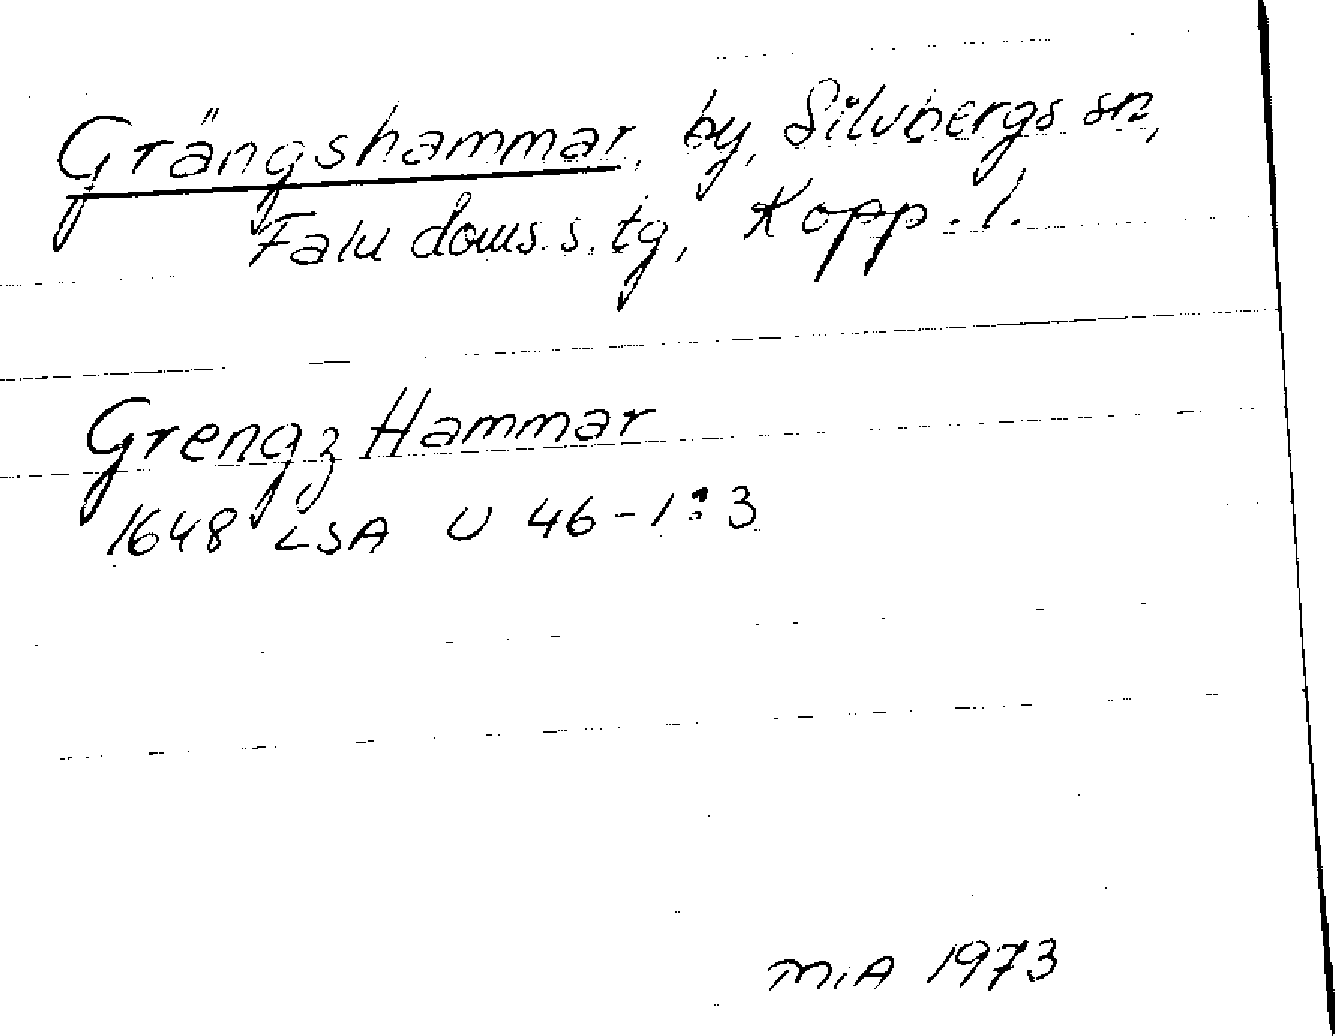 Grängshammar, by, Silvbergs sn,
Falu doms.s. tg, Kopp. l.
Grengz Hammar
1648 LSA U 46-1:3
M.A 1973